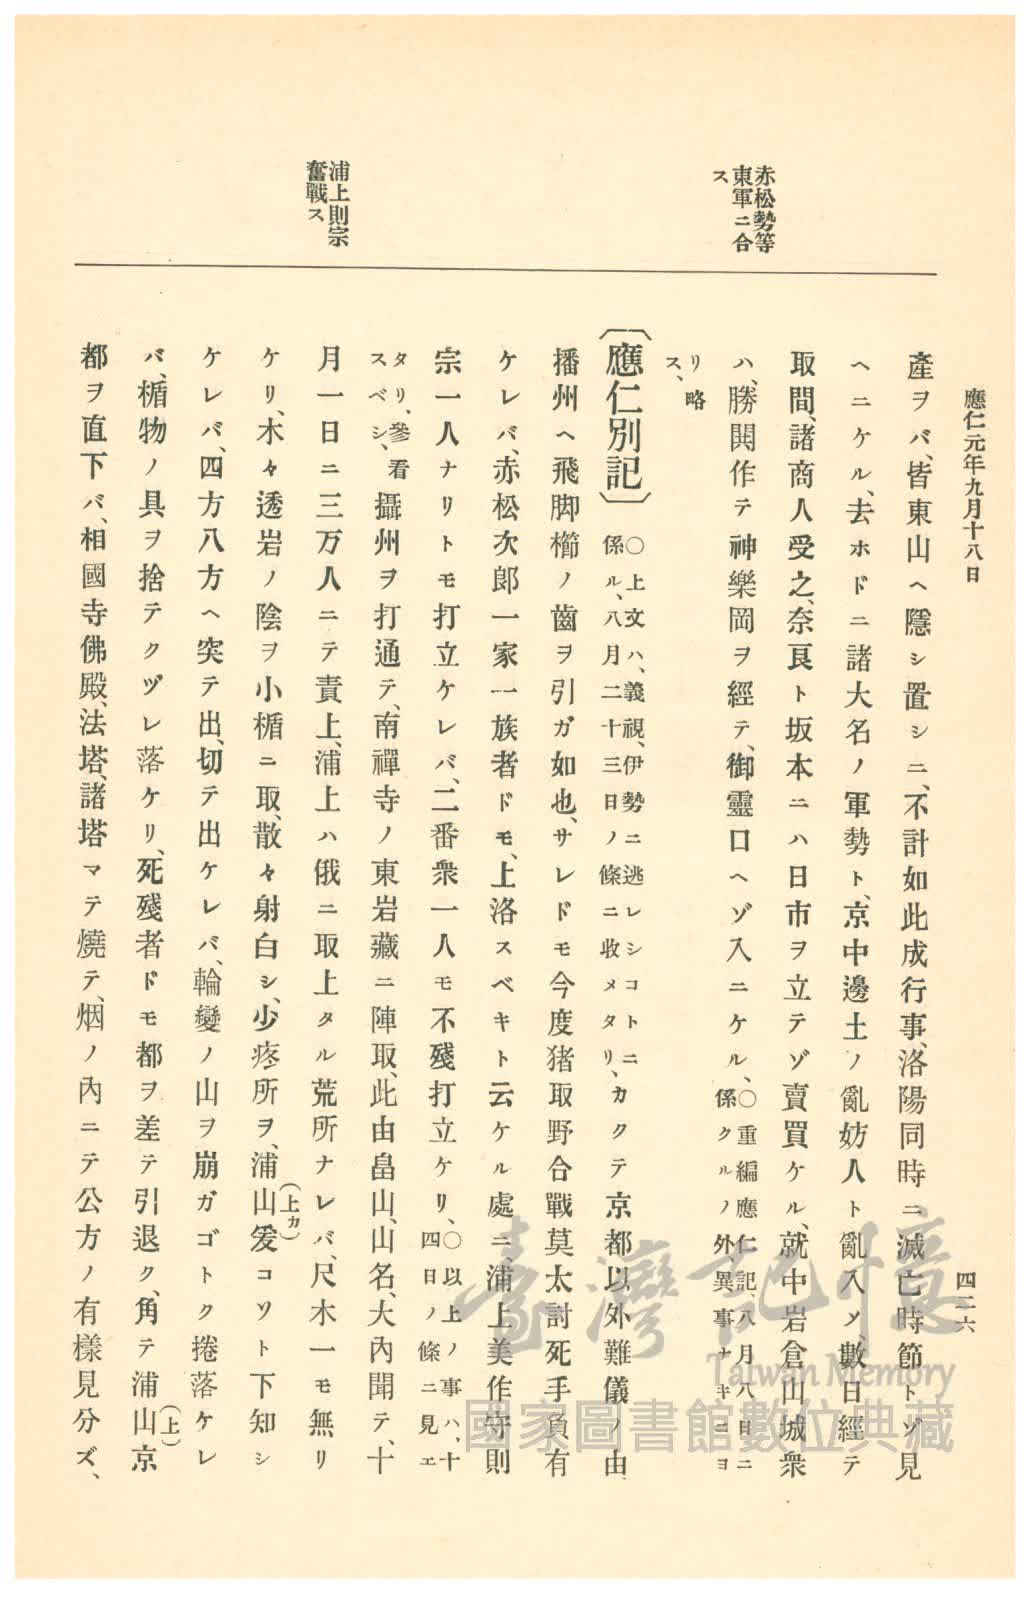 應仁元年九月十八日
四二六
赤松勢等
東軍ニ合
ス
浦上則宗
奮戰ス
產ヲバ、皆東山ヘ隱シ置シニ、不計如此成行事、洛陽同時ニ滅亡時節トゾ見
ヘニケル、去ホドニ諸大名ノ軍勢ト、京中邊土ノ亂妨人ト亂入メ、數日經テ
取間、諸商人受之、奈良ト坂本ニハ日市ヲ立テゾ賣買ケル、就中岩倉山城衆
ハ、勝鬨作テ神樂岡ヲ經テ、御靈口ヘゾ入ニケル、
○重編應仁記、八月八日ニ
係クルノ外、異事ナキニヨ
リ略
ス、
〔應仁別記〕
○上文ハ、義視、伊勢ニ逃レシコトニ
係ル、八月二十三日ノ條ニ收メタリ、
カクテ京都以外難儀ノ由
播州ヘ飛脚櫛ノ齒ヲ引ガ如也、サレドモ今度猪取野合戰莫太討死手負有
ケレバ、赤松次郎一家一族者ドモ、上洛スベキト云ケル處ニ、浦上美作守則
宗一人ナリトモ打立ケレバ、二番衆一人モ不殘打立ケリ、
○以上ノ事ハ、十
四日ノ條ニ見エ
タリ、參看
スベシ、
攝州ヲ打通テ、南禪寺ノ東岩藏ニ陣取、此由畠山、山名、大內聞テ、十
月一日ニ三万人ニテ責上、浦上ハ俄ニ取上タル荒所ナレバ、尺木一モ無リ
ケリ、木々透岩ノ陰ヲ小楯ニ取、散々射白シ、少疼所ヲ、浦山(上カ)爰コソト下知シ
ケレバ、四方八方ヘ突テ出、切テ出ケレバ、輪變ノ山ヲ崩ガゴトク捲落ケレ
バ、楯物ノ具ヲ捨テクヅレ落ケリ、死殘者ドモ都ヲ差テ引退ク、角テ浦山(上)京
都ヲ直下バ、相國寺佛殿、法塔、諸塔マテ燒テ、烟ノ內ニテ公方ノ有樣見分ズ、
臺灣記憶
Taiwan Memory
國家圖書館數位典藏